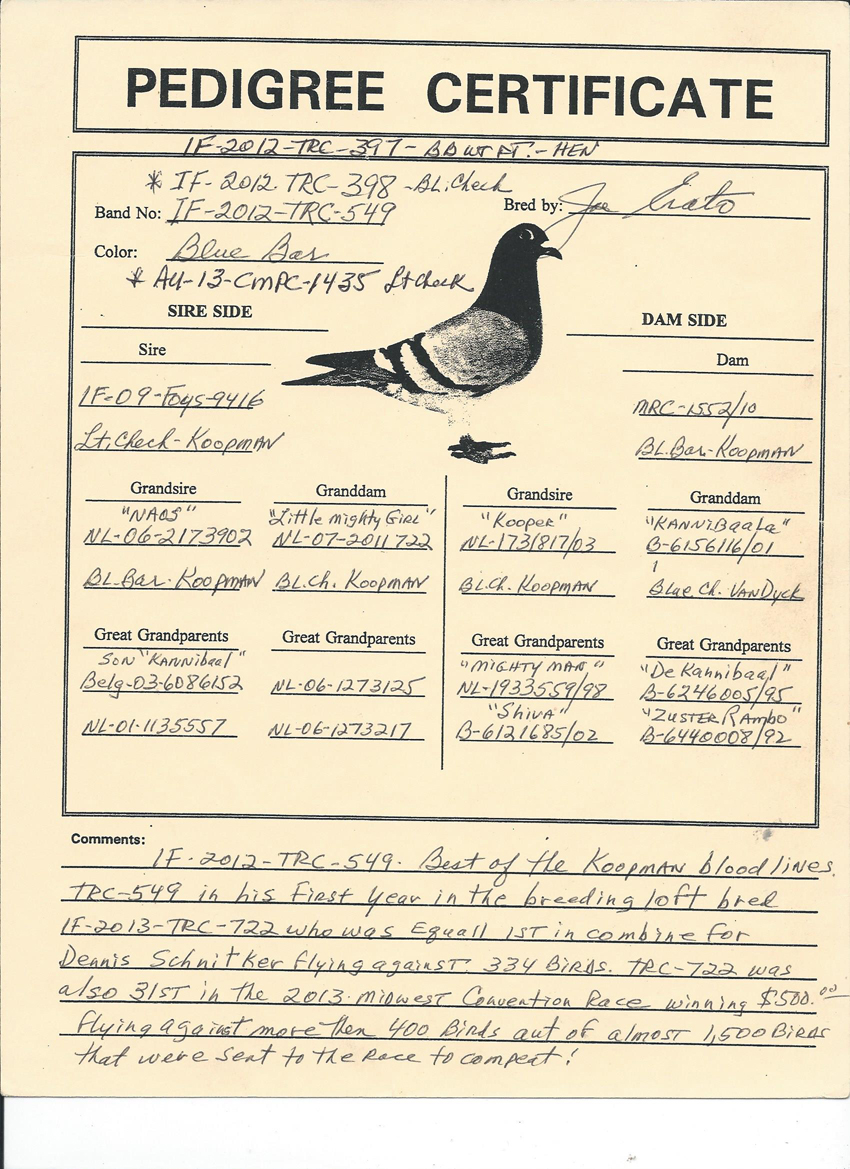 PEDIGREE CERTIFICATE
IF-2012-TRC-397- BBWT PT.- HEN
* IF-2012 TRC-398 -BL.Check
Band No: IF-2012-TRC-549
Bred by: Joe
Color: Blue Bar
* AU-13-CMPC-1435 Lt Check
SIRE SIDE
DAM SIDE
Sire
Dam
IF-09-Foys-9416
MRC-1552/10
Lt. Check-KOOPMAN
BL.Bar-KOOPMAN
Grandsire Granddam Grandsire Granddam
"NAOS" "Little mighty GIRL" "Kooper" "KANNiBaaLa"
NL-06-2173902 NL-07-2011722 NL-1731817/03 B-6156116/01
BL.Bar. KOOPMAN BL.Ch. KOOPMAN BL.Ch. KOOPMAN Blue Ch. VANDyck
Great Grandparents Great Grandparents Great Grandparents Great Grandparents
SON "KANNibaal" "MIGHTY MAN" "De Kannibaal"
Belg-03-6086152 NL-06-1273125 NL-1933559/98 B-6246005/95
"SHIVA" "ZUSTER RAMbo"
NL-01-1135557 NL-06-1273217 B-6121685/02 B-6440008/92
Comments:
IF-2012-TRC-549. Best of the KOOPMAN blood lines.
TRC-549 in his First Year in the breeding loft bred
IF-2013-TRC-722 who was Equall 1ST in combine for
Dennis Schnitker flying against 334 BIRDS. TRC-722 was
also 31ST in the 2013 Midwest Convention Race winning $500.00
flying against more then 400 Birds out of almost 1,500 BIRDS
that were sent to the Race to compeat!